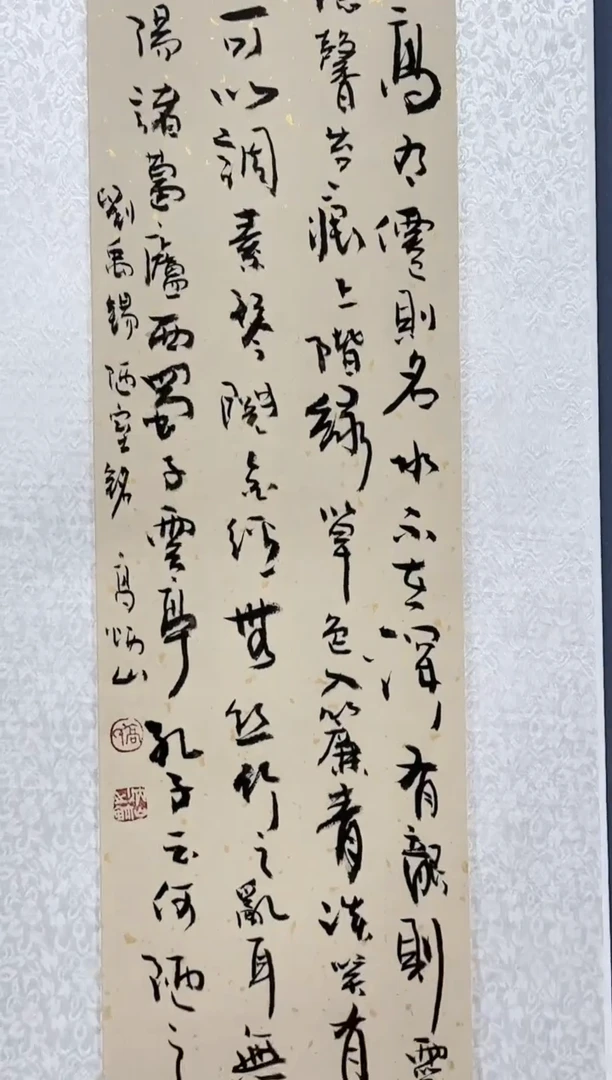 高有僊則名水不在深有龍則靈
馨苔痕上階綠草色入簾青談笑有
可以調素琴閱金經無絲竹之亂耳無
陽諸葛廬西蜀子雲亭孔子云何陋之
劉禹錫陋室銘 高炳山